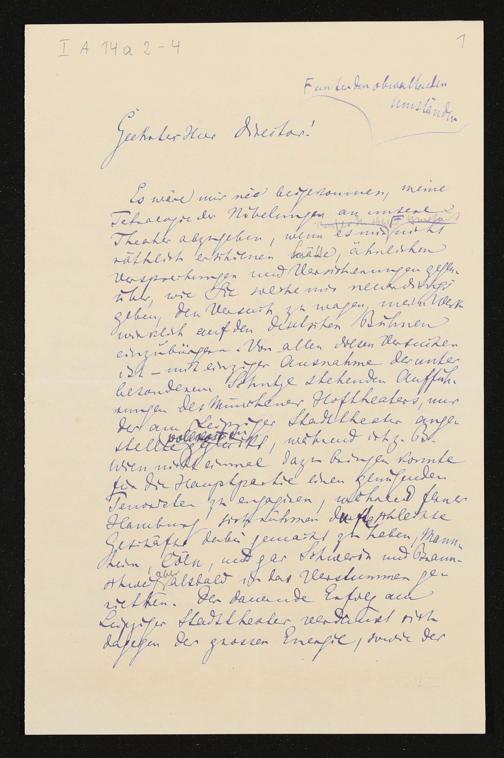 I A 14a 2-4
1
F unter den obwaltenden
Umständen
Geehrter Herr Director!
Es wäre mir nie beigekommen, meine
Tetralogie der Nibelungen an unsere
Theater abzugeben, wenn es mir F nicht
räthlich erschienen hätte, ähnlichen
Versprechungen und Versicherungen gegen-
über, wie Sie solche mir neuerdings
geben, den Versuch zu wagen, mein Werk
wirklich auf den deutschen Bühnen
einzubürgern. Von allen diesen Versuchen
ist – mit einziger Ausnahme der unter
besonderem Schutze stehenden Auffüh-
rungen des Münchener Hoftheaters, nur
der am Leipziger Stadttheater ange-
stellte geglückt, während ich z. B.
Wien nicht einmal dazu bringen konnte
für die Hauptpartie einen genügenden
Tenoristen zu engagiren, während ferner
Hamburg sich rühmen durfte schlechte
Geschäfte dabei gemacht zu haben, Mann-
heim, Cöln, und gar Schwerin und Braun-
schweig aber alsbald in das Verstummen ge-
riethen. Der dauernde Erfolg am
Leipziger Stadttheater verdankt sich
dagegen der grossen Energie, sowie der